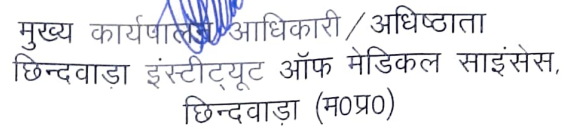 मुख्य कार्यपालन आधिकारी / अधिष्ठाता
छिन्दवाड़ा इंस्टीट्यूट ऑफ मेडिकल साइंसेस,
छिन्दवाड़ा (म0प्र0)